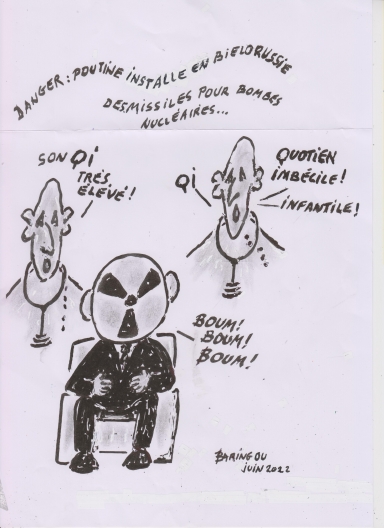 DANGER: POUTINE INSTALLE EN BIELORUSSIE
DES MISSILES POUR BOMBES
NUCLÉAIRES...
SON QI
TRÈS
ÉLEVÉ!
QI
QUOTIEN
IMBÉCILE!
INFANTILE!
BOUM!
BOUM!
BOUM!
BARINGOU
JUIN 2022